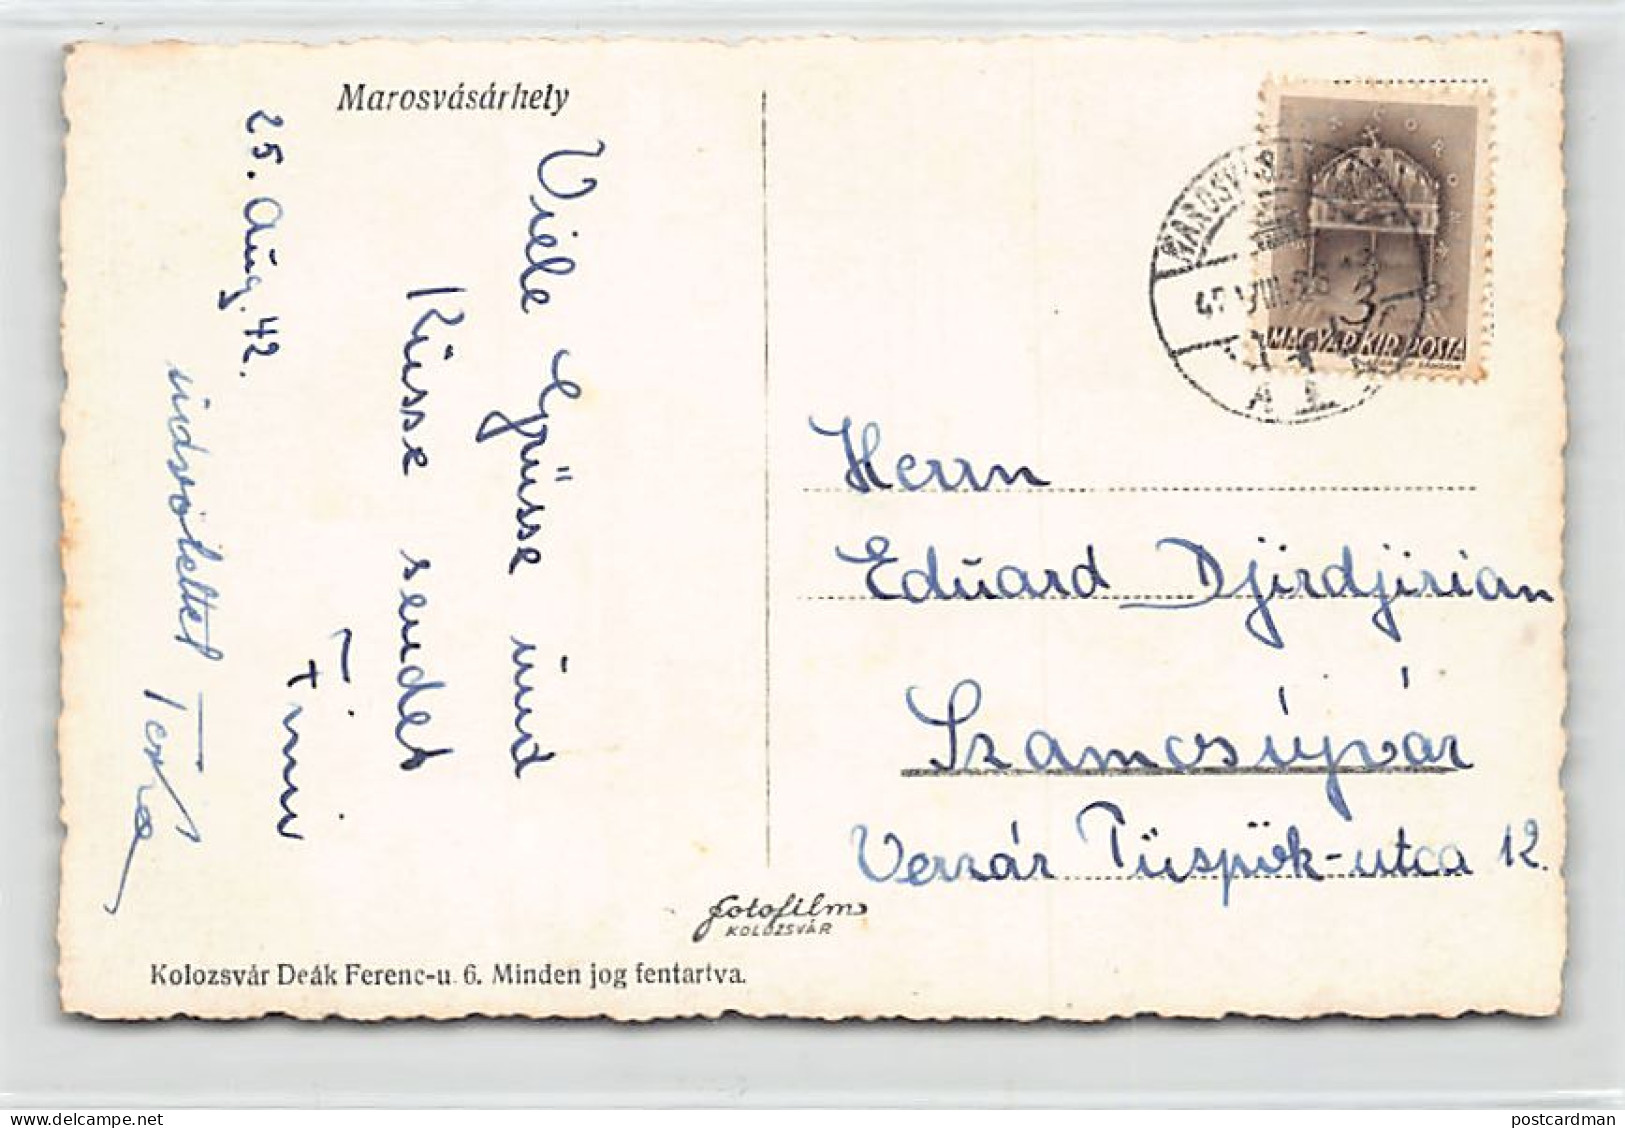 Marosvásárhely
25. Aug. 42.
Viele Grüsse und
Küsse sendet
Timi
üdvözlettel Terka
MAROSVÁSÁ
VIII. 25
A 1
3
MAGYAR KIR. POSTA
Herrn
Eduard Djirdjirian
Szamosújvár
Verzár Püspök-utca 12.
fotofilm
KOLOZSVÁR
Kolozsvár Deák Ferenc-u. 6. Minden jog fentartva.
delcampe.net
postcardman